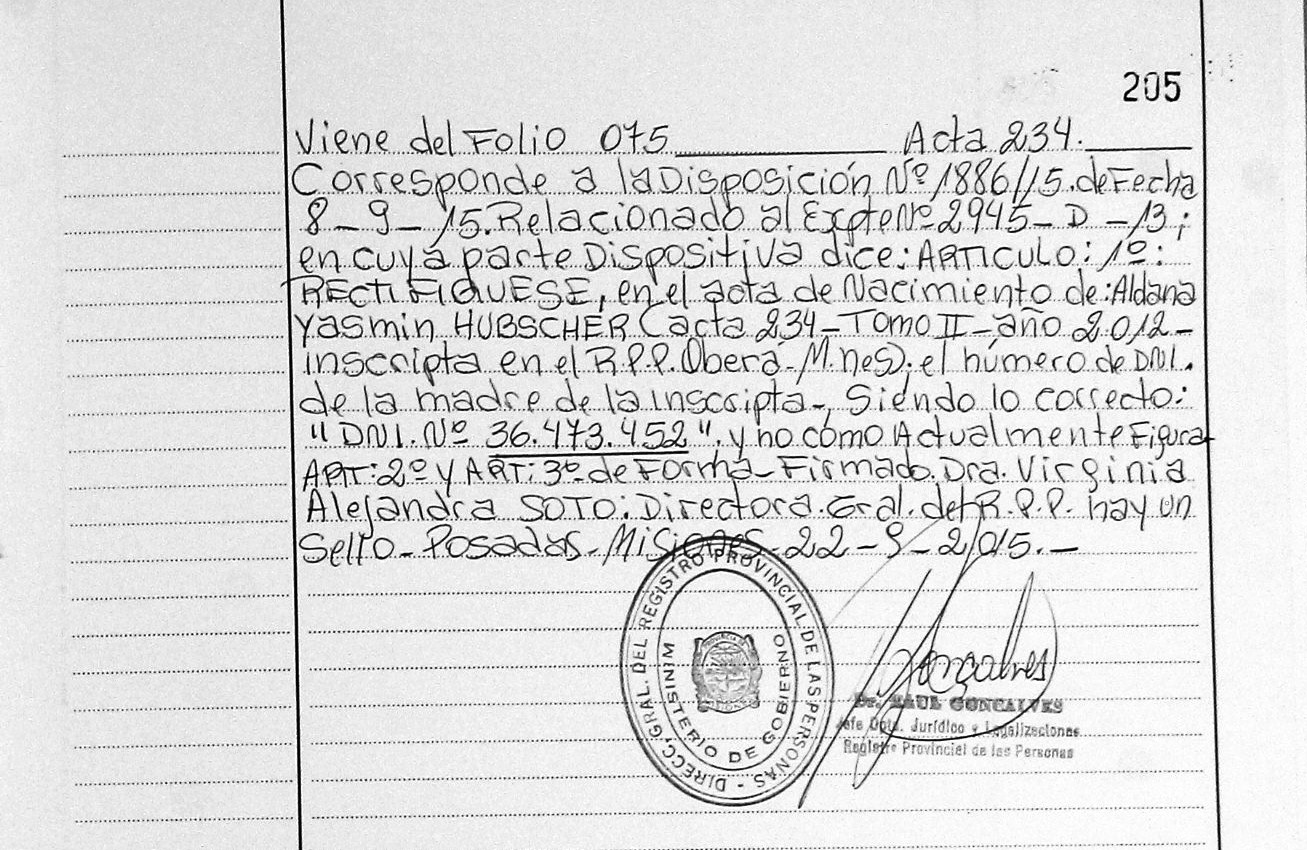 205
Viene del Folio 075 Acta 234.
Corresponde a la Disposición Nº 1886/15. de Fecha
8-9-15. Relacionado al Expte Nº 2945-D-13;
en cuya parte Dispositiva dice: ARTICULO: 1º:
RECTIFIQUESE, en el acta de Nacimiento de: Aldana
Yasmin HUBSCHER (acta 234-Tomo II-año 2012-
inscripta en el R.P.P. Oberá-M.nes). el número de DNI.
de la madre de la inscripta-, Siendo lo correcto:
"DNI. Nº 36.473.452". y no como Actualmente Figura
ART: 2º y ART: 3º de Forma-Firmado. Dra. Virginia
Alejandra SOTO: Directora. Gral. del R.P.P. hay un
Sello-Posadas-Misiones-22-9-2015.-
DIRECC. GRAL. DEL REGISTRO PROVINCIAL DE LAS PERSONAS -
MINISTERIO DE GOBIERNO
PROVINCIA DE
MISIONES
Gonçalves
Dr. RAUL GONCALVES
Jefe Dpto. Jurídico y Legalizaciones
Registro Provincial de las Personas